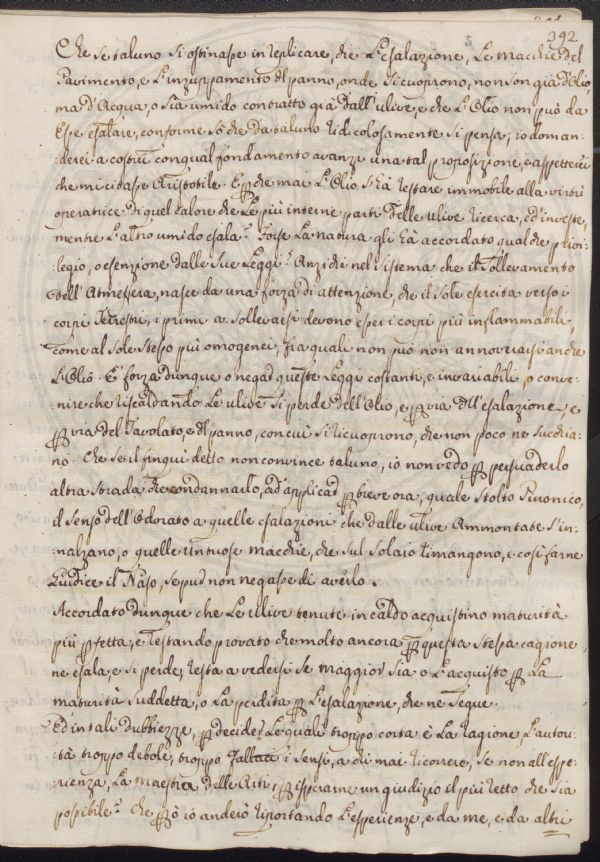 392
Che se taluno si ostinasse in replicare, che l'esalazione, le macchie del
Pavimento, e l'inzuppamento del panno, onde si cuoprono, non son già d'Olio,
ma d'Acqua, o sia umido contratto già dall'ulive, e che l'Olio non può da
Esse esalare, conforme sò che da taluno ridicolosamente si pensa; io doman=
=derei a costui con qual fondamento avanzi una tal proposizione, e aspetterei
che mi citasse Aristotile. E pche mai l'Olio si hà restare immobile alla virtù
operatrice di quel calore che le più interne parti delle ulive ricerca, ed investe,
mentre l'altro umido esala? Forse la natura gli hà accordato qualche privi=
legio, o esenzione dalle sue Leggi? Anzi che nel sistema che il sollevamento
dell'Atmosfera, nasce da una forza di attenzione, che il sole esercita verso i
corpi Terrestri, i primi a sollevarsi devono esser i corpi più inflammabili,
come al Sole stesso più omogenei, fra quali non può non annoverarsi anche
l'Olio. E' forza dunque o negar queste Leggi costanti, e invariabili, o conve=
nire che riscaldando le ulive si perde dell'Olio, e p via dell'esalazione, e
p via del Tavolato, e del panno, con cui si ricuoprono, che non poco ne succhia=
no. Che se il finqui detto non convince taluno, io non vedo p persuaderlo
altra strada che condannarlo, ad applicar p breve ora, quale stolto Pirronico,
il senso dell'Odorato a quelle esalazioni che dalle ulive Ammontate s'in=
nalzano, o quelle untuose macchie, che sul solaio rimangono, e così farne
Giudice il Naso, se pur non negasse di averlo.
Accordato dunque che le ulive tenute in caldo acquistino maturità
più pfetta, e restando provato che molto ancora p questa stessa cagione
ne esala, e si perde, resta a vedersi se maggior sia o l'acquisto p la
maturità suddetta, o la perdita p l'esalazione, che ne segue.
Ed in tali dubbiezze, p decider le quali troppo corta è la ragione, l'autori=
tà troppo debole, troppo fallaci i sensi, a chi mai ricorrere, se non all'espe=
rienza, la maestra delle Arti, p isperarne un giudizio il più retto che sia
possibile? Che pò io anderò riportando l'esperienze, e da me, e da altri